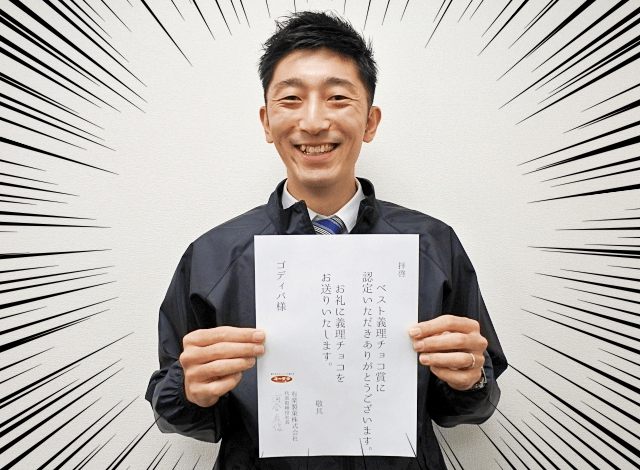 拝啓
ベスト義理チョコ賞に
認定いただきありがとうございます。
お礼に義理チョコを
お送りいたします。
敬具
ゴディバ様
有楽製菓株式会社
代表取締役社長